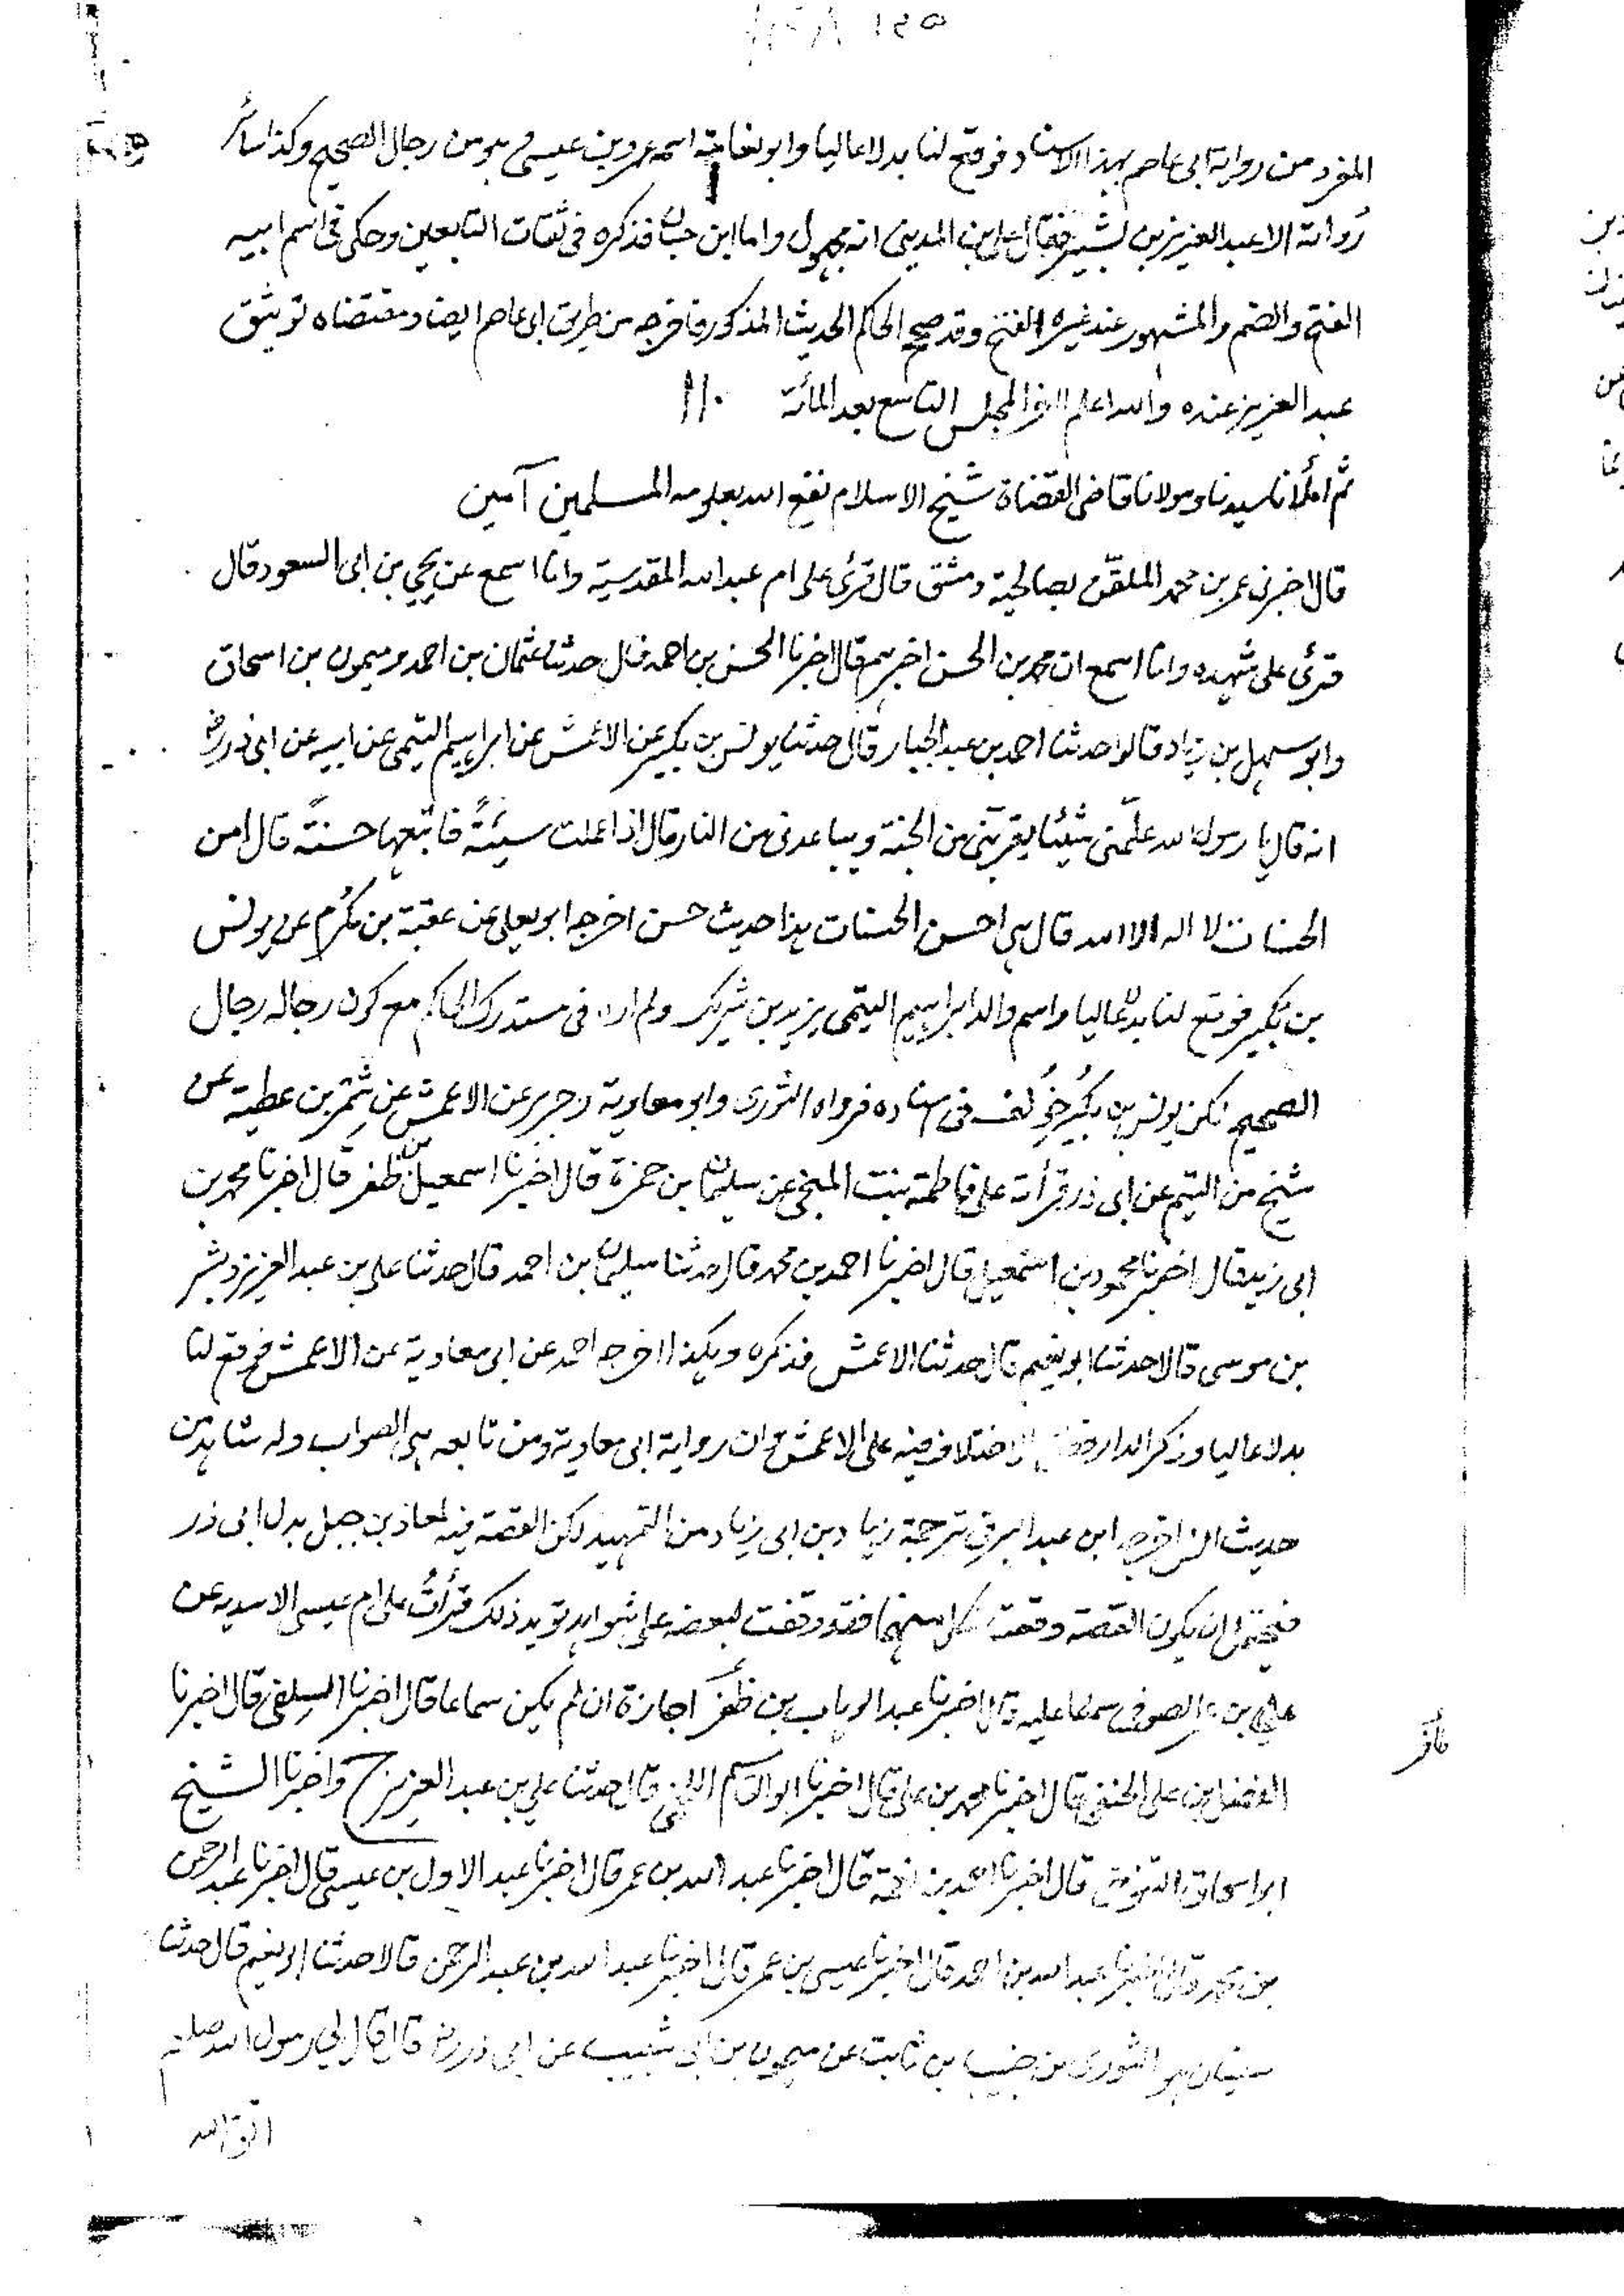 المفرد من رواية ابى عاصم بهذا الاسناد فوقع لنا بدلا عاليا وابو نعامة اسمه عمرو بن عيسى هو من رجال الصحيح وكذا سائر
رواته الا عبد العزيز بن بشير فقال على بن المدينى انه مجهول واما ابن حبان فذكره فى ثقات التابعين وحكى فى اسم ابيه
الفتح والضم والمشهور عند غيره الفتح وقد صحح الحاكم الحديث المذكور فاخرجه من طريق ابى عاصم ايضا ومقتضاه توثيق
عبد العزيز عنده والله اعلم آخر المجلس التاسع بعد المائة ١١٠
ثم املأنا سيدنا ومولانا قاضى القضاة شيخ الاسلام نفع الله بعلومه المسلمين آمين
قال اخبرنى عمر بن محمد الملقّن بصالحية دمشق قال قرئ على ام عبد الله المقدسية وانا اسمع عن يحيى بن ابى السعود قال
قرئ على شهيده وانا اسمع ان محمد بن الحسن اخبرهم قال اخبرنا الحسن بن احمد قال حدثنا عثمان بن احمد وميمون بن اسحاق
وابو سهل بن زياد قالوا حدثنا احمد بن عبد الجبار قال حدثنا يونس بن بكير عن الاعمش عن ابراهيم التيمى عن ابيه عن ابى ذر رض
انه قال يا رسول الله علّمنى شيئا يقربنى من الجنة ويباعدنى من النار قال اذا عملت سيئةً فاتبعها حسنةً قال امن
الحسنات لا اله الا الله قال هى احسن الحسنات هذا حديث حسن اخرجه ابو يعلى عن عقبة بن مكرم عن يونس
بن بكير فوقع لنا بدلا عاليا واسم والد ابراهيم التيمى يزيد بن شريك ولم اره فى مستدرك الحاكم مع كون رجاله رجال
الصحيح لكن يونس بن بكير خُولف فى اسناده فرواه الثورى وابو معاوية وجرير عن الاعمش عن شِمْر بن عطية عن
شيخ من التيم عن ابى ذر قرأته على فاطمة بنت المنجى عن سليمان بن حمزة قال اخبرنا اسمعيل بن ظفر قال اخبرنا محمد بن
ابى زيد قال اخبرنا محمود بن اسمعيل قال اخبرنا احمد بن محمد قال حدثنا سليمان بن احمد قال حدثنا على بن عبد العزيز وبشر
بن موسى قالا حدثنا ابو نعيم قال حدثنا الاعمش فذكره وهكذا اخرجه احمد عن ابى معاوية عن الاعمش فوقع لنا
بدلا عاليا وذكر الدارقطنى الاختلاف فيه على الاعمش وان رواية ابى معاوية ومن تابعه هى الصواب وله شاهد من
حديث انس اخرجه ابن عبد البر فى ترجمة زياد بن ابى زياد من التمهيد لكن القصة فيه لمعاذ بن جبل بدل ابى ذر
فيحتمل ان يكون القصة وقعت لكل منهما فقد وقفت لبعضه على شواهد تويد ذلك قرأتُ على ام عيسى الاسديه عن
على بن عمر الصوفى سماعا عليه قال اخبرنا عبد الوهاب بن ظفَر اجازة ان لم يكن سماعا قال اخبرنا السِلفى قال اخبرنا
الفضل بن على الحنفى قال اخبرنا محمد بن على قال اخبرنا ابو القاسم قال حدثنا على بن عبد العزيز ح واخبرنا الشيخ
ابو اسحاق التنوخى قال اخبرنا احمد بن نعمة قال اخبرنا عبد الله بن عمر قال اخبرنا عبد الاول بن عيسى قال اخبرنا عبد الرحمن
بن محمد قال اخبرنا عبد الله بن احمد قال اخبرنا عيسى بن عمر قال اخبرنا عبد الله بن عبد الرحمن قالا حدثنا ابو نعيم قال حدثنا
سفيان هو الثورى عن حبيب بن ثابت عن ميمون بن ابى شبيب عن ابى ذر رض قال قال لى رسول الله صلعم
اتق الله